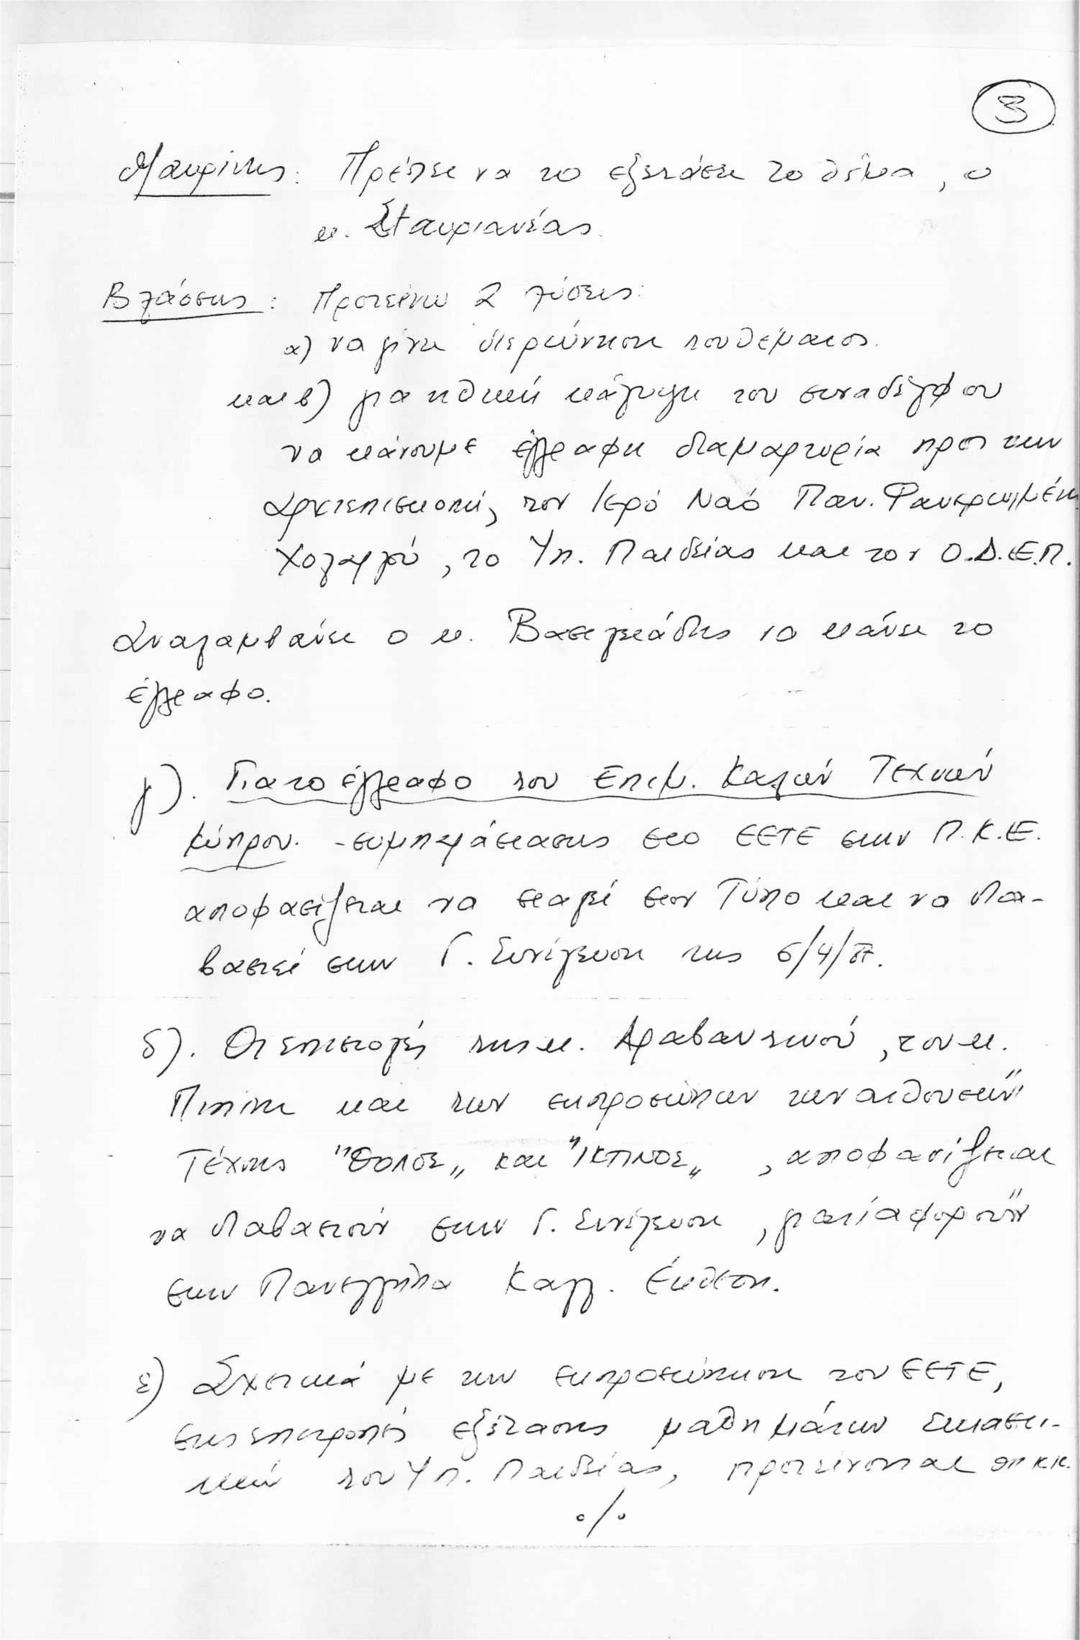 3
Μαυρίκης: Πρέπει να το εξετάσει το θέμα, ο
κ. Σταυριανέας.
Βλάσσης: Προτείνω 2 λύσεις:
α) να γίνει διερεύνηση του θέματος.
και β) για ηθική κάλυψη του συναδέλφου
να κάνουμε έγγραφη διαμαρτυρία προς την
Αρχιεπισκοπή, τον Ιερό Ναό Παν. Φανερωμένη
Χολαργού, το Υπ. Παιδείας και τον Ο.Δ.Ε.Π.
Αναλαμβάνει ο κ. Βασιλειάδης να κάνει το
έγγραφο.
γ). Για το έγγραφο του Επιμ. Καλών Τεχνών
Κύπρου. - συμπαράστασης στο ΕΕΤΕ στην Π.Κ.Ε.
αποφασίζεται να σταλεί στον Τύπο και να δια-
βαστεί στην Γ. Συνέλευση της 6/4/87.
δ). Οι επιστολές της κ. Αραβαντινού, του κ.
Πιπίνη και των εκπροσώπων των αιθουσών
Τέχνης "ΘΟΛΟΣ" και "ΙΚΤΙΝΟΣ", αποφασίζεται
να διαβαστούν στην Γ. Συνέλευση, γιατί αφορούν
στην Πανελλήνια Καλλ. Έκθεση.
ε) Σχετικά με την εκπροσώπηση του ΕΕΤΕ,
στις επιτροπές εξέτασης μαθημάτων εικαστι-
κών του Υπ. Παιδείας, προτείνονται οι κ.κ.
./.